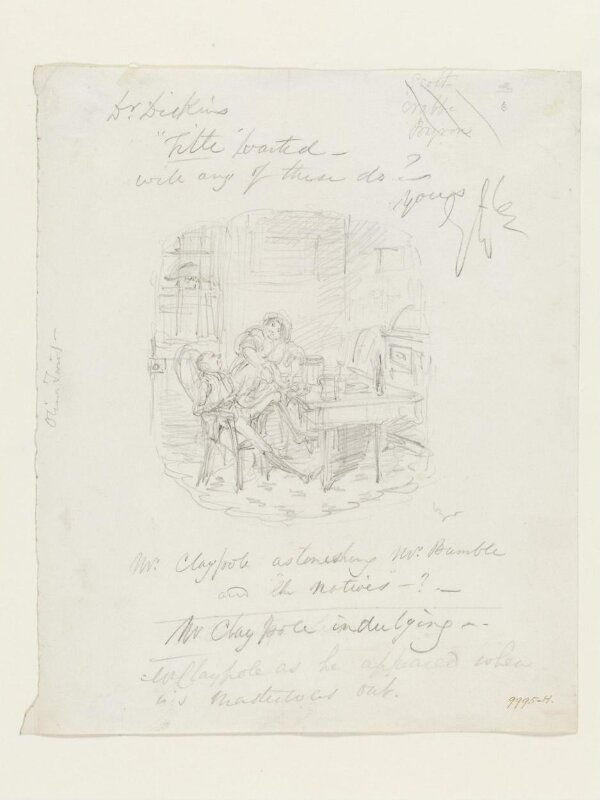 Dr Dickins
"Title" wanted -
will any of these do?
Yours
Scott
Crabbe
Byron
Oliver Twist -
Mr Claypole astonishing Mr Bumble
and "the natives" - ? -
Mr Claypole indulging -
Mr Claypole as he appeared when
his master was out.
9995-H.